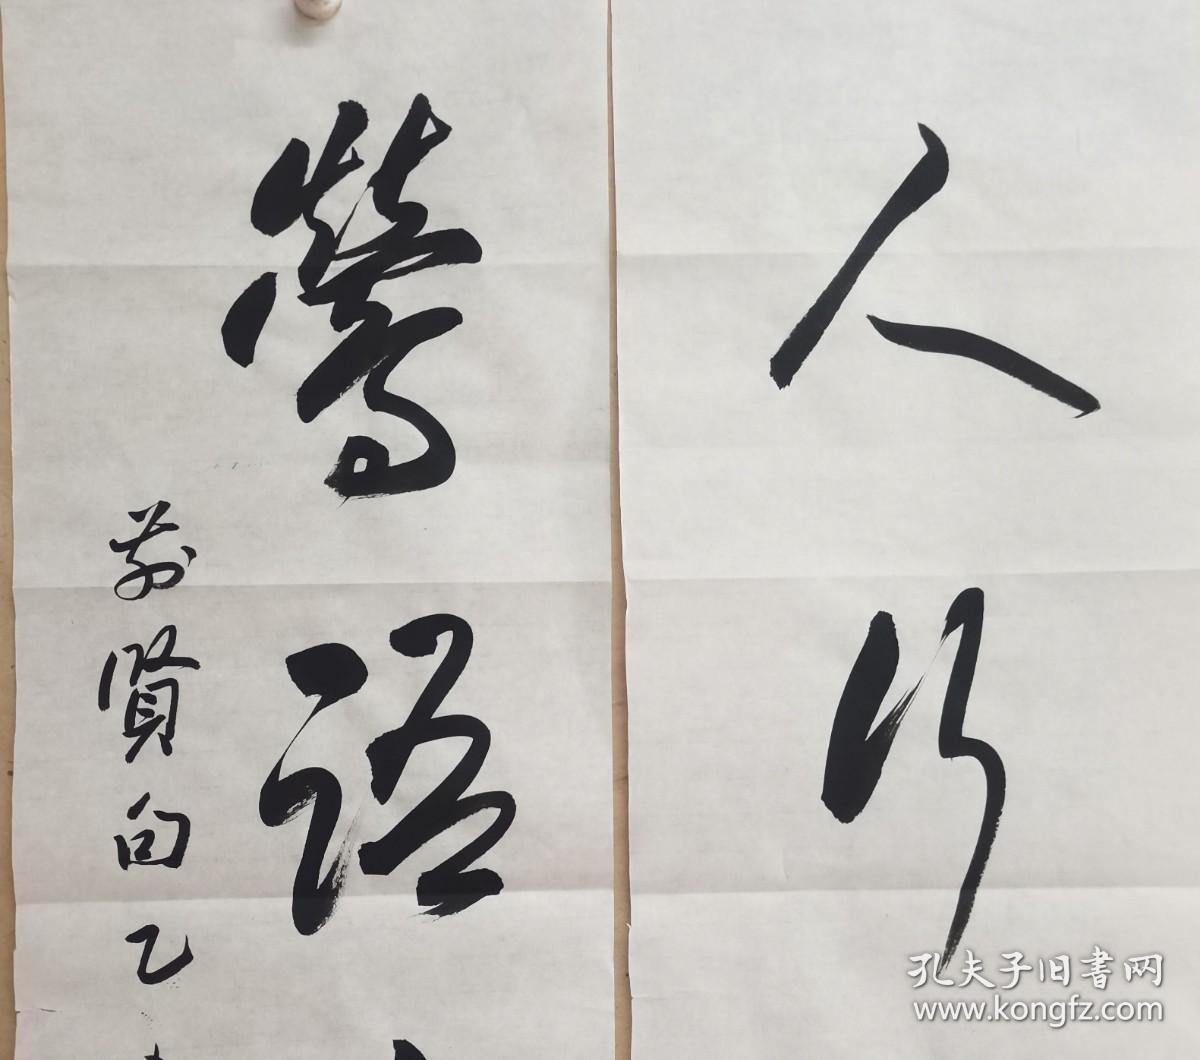 人行
鶯語
前賢句乙
孔夫子旧書网
www.kongfz.com